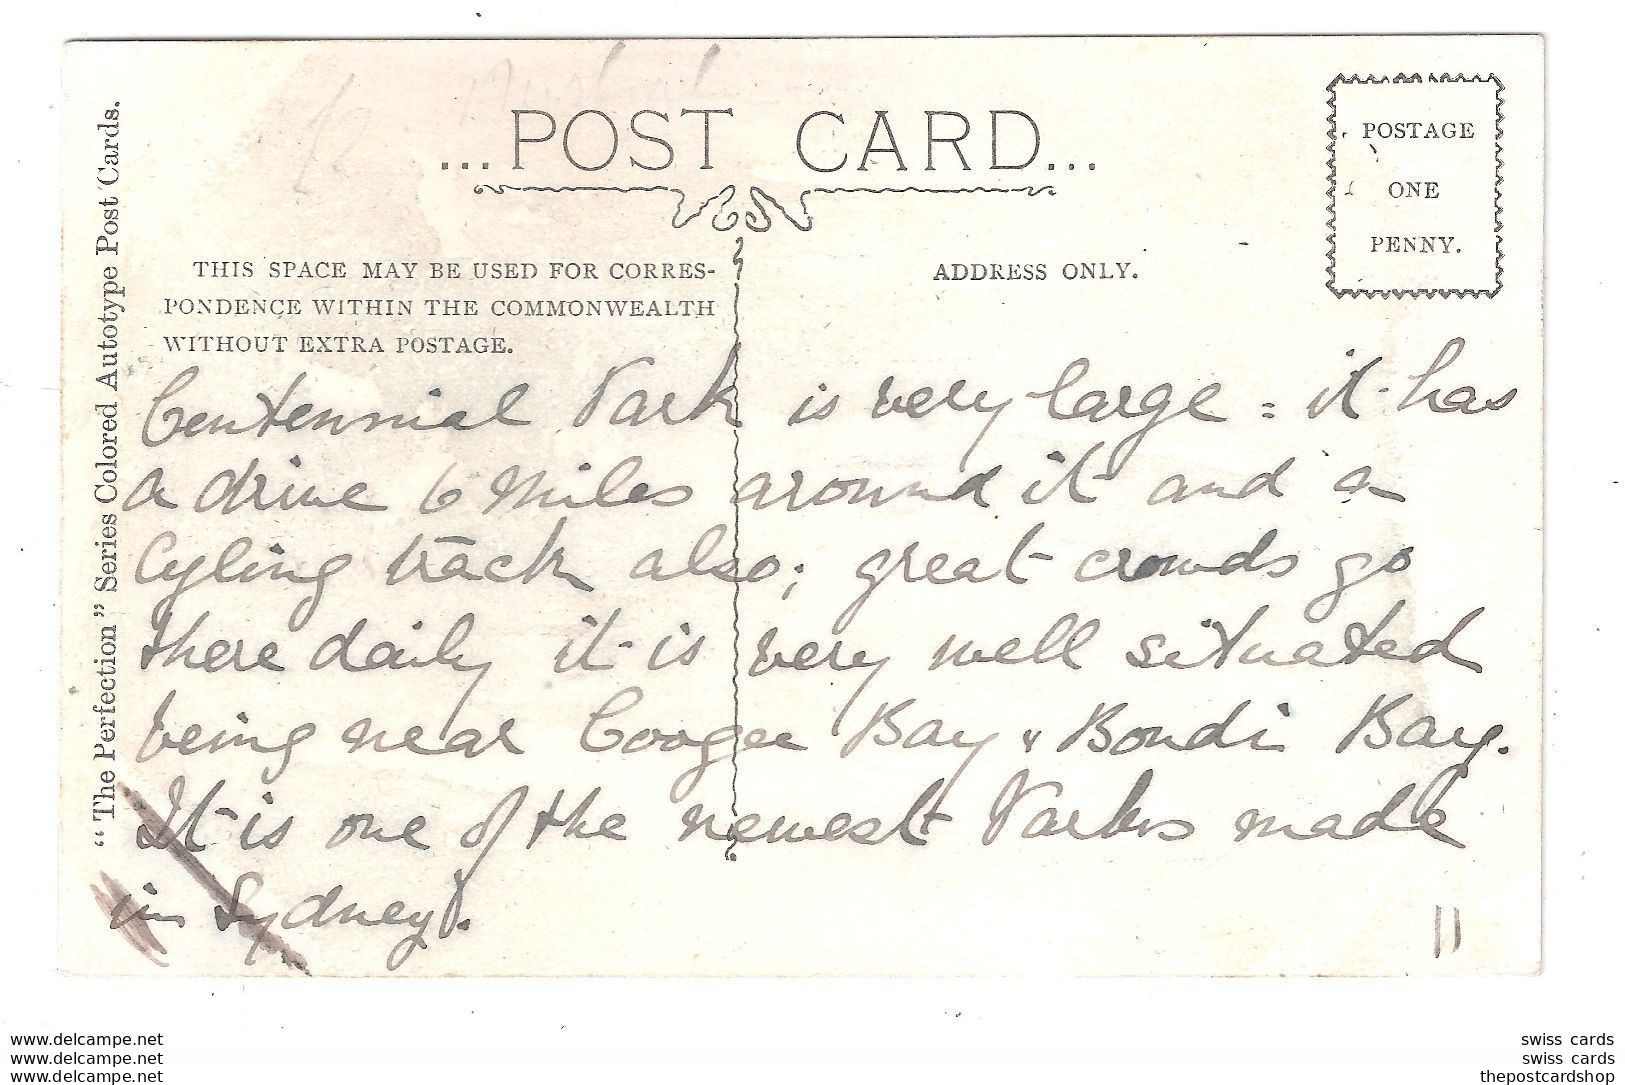 ...POST CARD...
POSTAGE
ONE
PENNY.
THIS SPACE MAY BE USED FOR CORRES-
PONDENCE WITHIN THE COMMONWEALTH
WITHOUT EXTRA POSTAGE.
ADDRESS ONLY.
"The Perfection" Series Colored Autotype Post Cards.
Centennial Park is very large = it has
a drive 6 miles around it and a
Cyling track also; great crowds go
there daily it is very well situated
being near Coogee Bay & Bondi Bay.
It is one of the newest Parks made
in Sydney.
11
www.delcampe.net
www.delcampe.net
www.delcampe.net
swiss cards
swiss cards
thepostcardshop